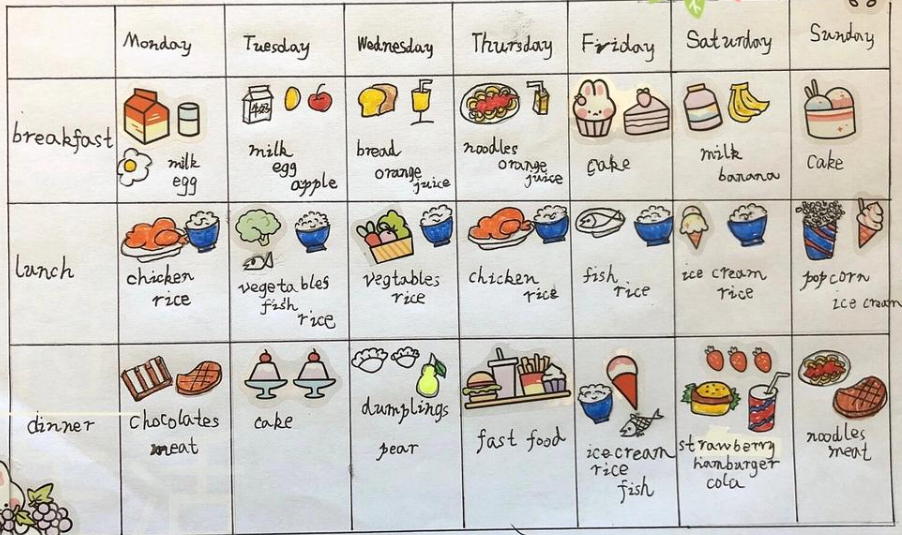 Monday Tuesday Wednesday Thursday Friday Saturday Sunday
breakfast
milk
egg
milk
egg
apple
bread
orange
juice
noodles
orange
juice
cake
milk
banana
cake
lunch
chicken
rice
vegetables
fish
rice
vegtables
rice
chicken
rice
fish
rice
ice cream
rice
popcorn
ice cream
dinner
chocolates
meat
cake
dumplings
pear
fast food
ice cream
rice
fish
strawberry
hamburger
cola
noodles
meat